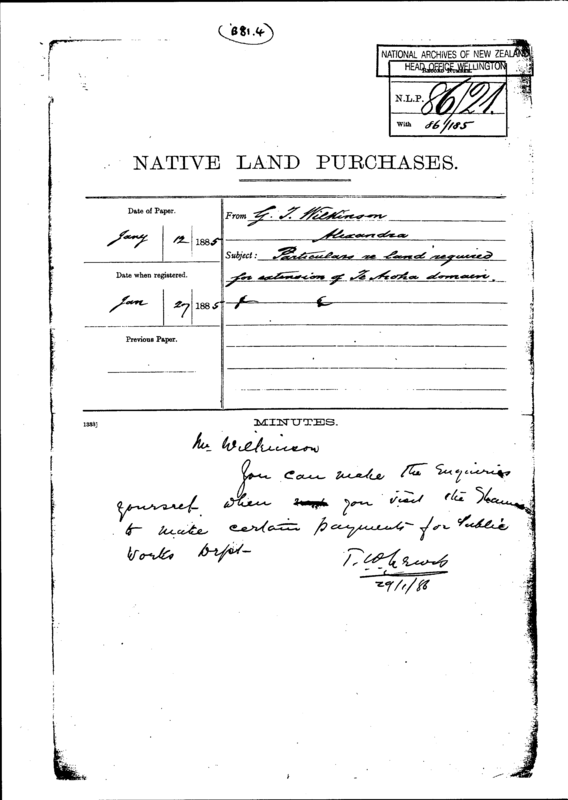 B81.4
NATIONAL ARCHIVES OF NEW ZEALAND
HEAD OFFICE WELLINGTON
N.L.P. 86/21.
With 86/185
NATIVE LAND PURCHASES.
Date of Paper.
Jany 12 1885
Date when registered.
Jan 27 1885
Previous Paper.
From G. T. Wilkinson
Alexandra
Subject: Particulars re land required
for extension of Te Aroha domain.
1333]
MINUTES.
Mr Wilkinson
You can make the enquiries
yourself when you visit the Thames
to make certain payments for Public
Works Dept
T. W. Lewis
29/1/86